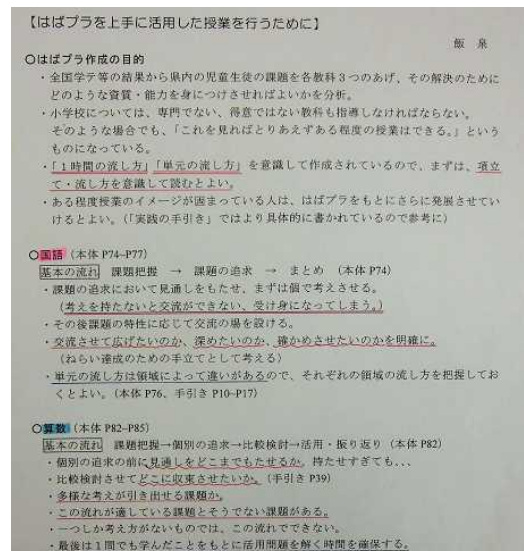 【はばプラを上手に活用した授業を行うために】
飯 泉
○はばプラ作成の目的
・全国学テ等の結果から県内の児童生徒の課題を各教科3つのあげ、その解決のために
どのような資質・能力を身につけさせればよいかを分析。
・小学校については、専門でない、得意ではない教科も指導しなければならない。
そのような場合でも、「これを見ればとりあえずある程度の授業はできる。」という
ものになっている。
・「1時間の流し方」「単元の流し方」を意識して作成されているので、まずは、項立
て・流し方を意識して読むとよい。
・ある程度授業のイメージが固まっている人は、はばプラをもとにさらに発展させてい
けるとよい。(「実践の手引き」ではより具体的に書かれているので参考に)
○国語(本体 P74-P77)
基本の流れ 課題把握 → 課題の追求 → まとめ (本体 P74)
・課題の追求において見通しをもたせ、まずは個で考えさせる。
(考えを持たないと交流ができない、受け身になってしまう。)
・その後課題の特性に応じて交流の場を設ける。
・交流させて広げたいのか、深めたいのか、確かめさせたいのかを明確に。
(ねらい達成のための手立てとして考える)
・単元の流し方は領域によって違いがあるので、それぞれの領域の流し方を把握してお
くとよい。(本体 P76、手引き P10-P17)
○算数(本体 P82-P85)
基本の流れ 課題把握→個別の追求→比較検討→活用・振り返り(本体 P82)
・個別の追求の前に見通しをどこまでもたせるか。持たせすぎても、、、
・比較検討させてどこに収束させたいか。(手引き P39)
・多様な考えが引き出せる課題か。
・この流れが適している課題とそうでない課題がある。
・一つしか考え方がないものでは、この流れでできない。
・最後は1問でも学んだことをもとに活用問題を解く時間を確保する。